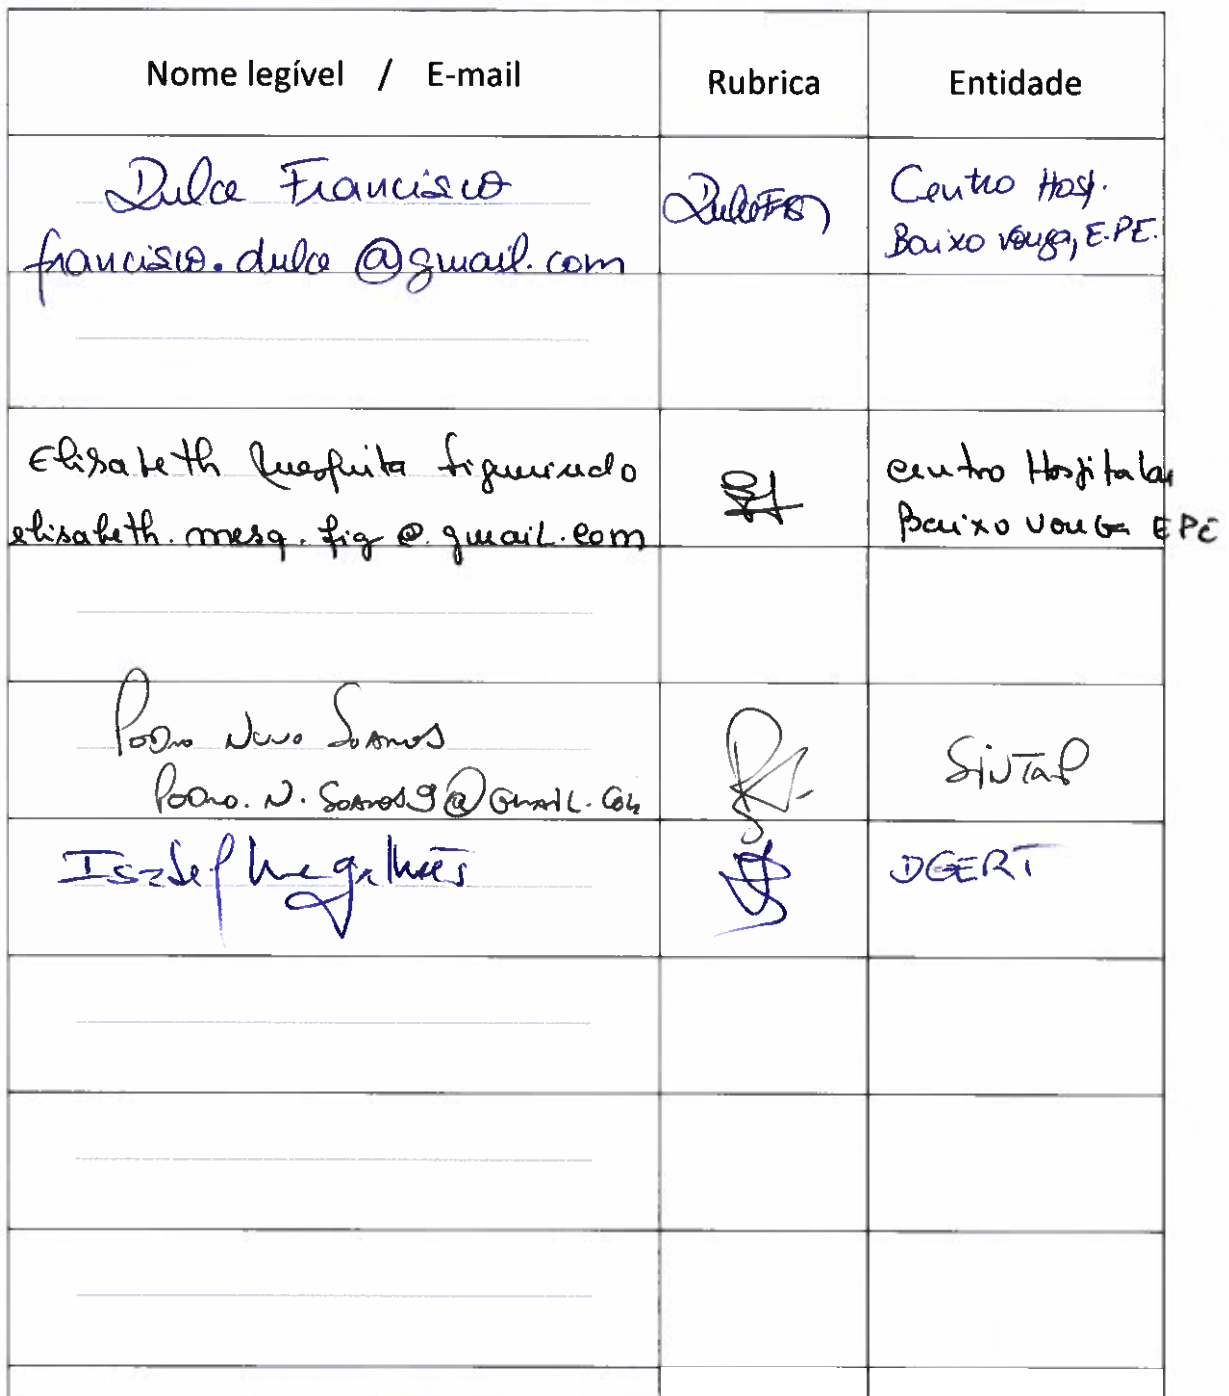 Nome legível / E-mail
Rubrica
Entidade
Dulce Francisco
francisco.dulce@gmail.com
Centro Hosp.
Baixo Vouga, E.PE.
Elisabeth Mesquita Figueiredo
elisabeth.mesq.fig@.gmail.com
Centro Hospitalar
Baixo Vouga EPE
Pedro Nuno Soares
Pedro.N.Soares9@Gmail.Com
SiNTaP
Isabel Magalhães
DGERT